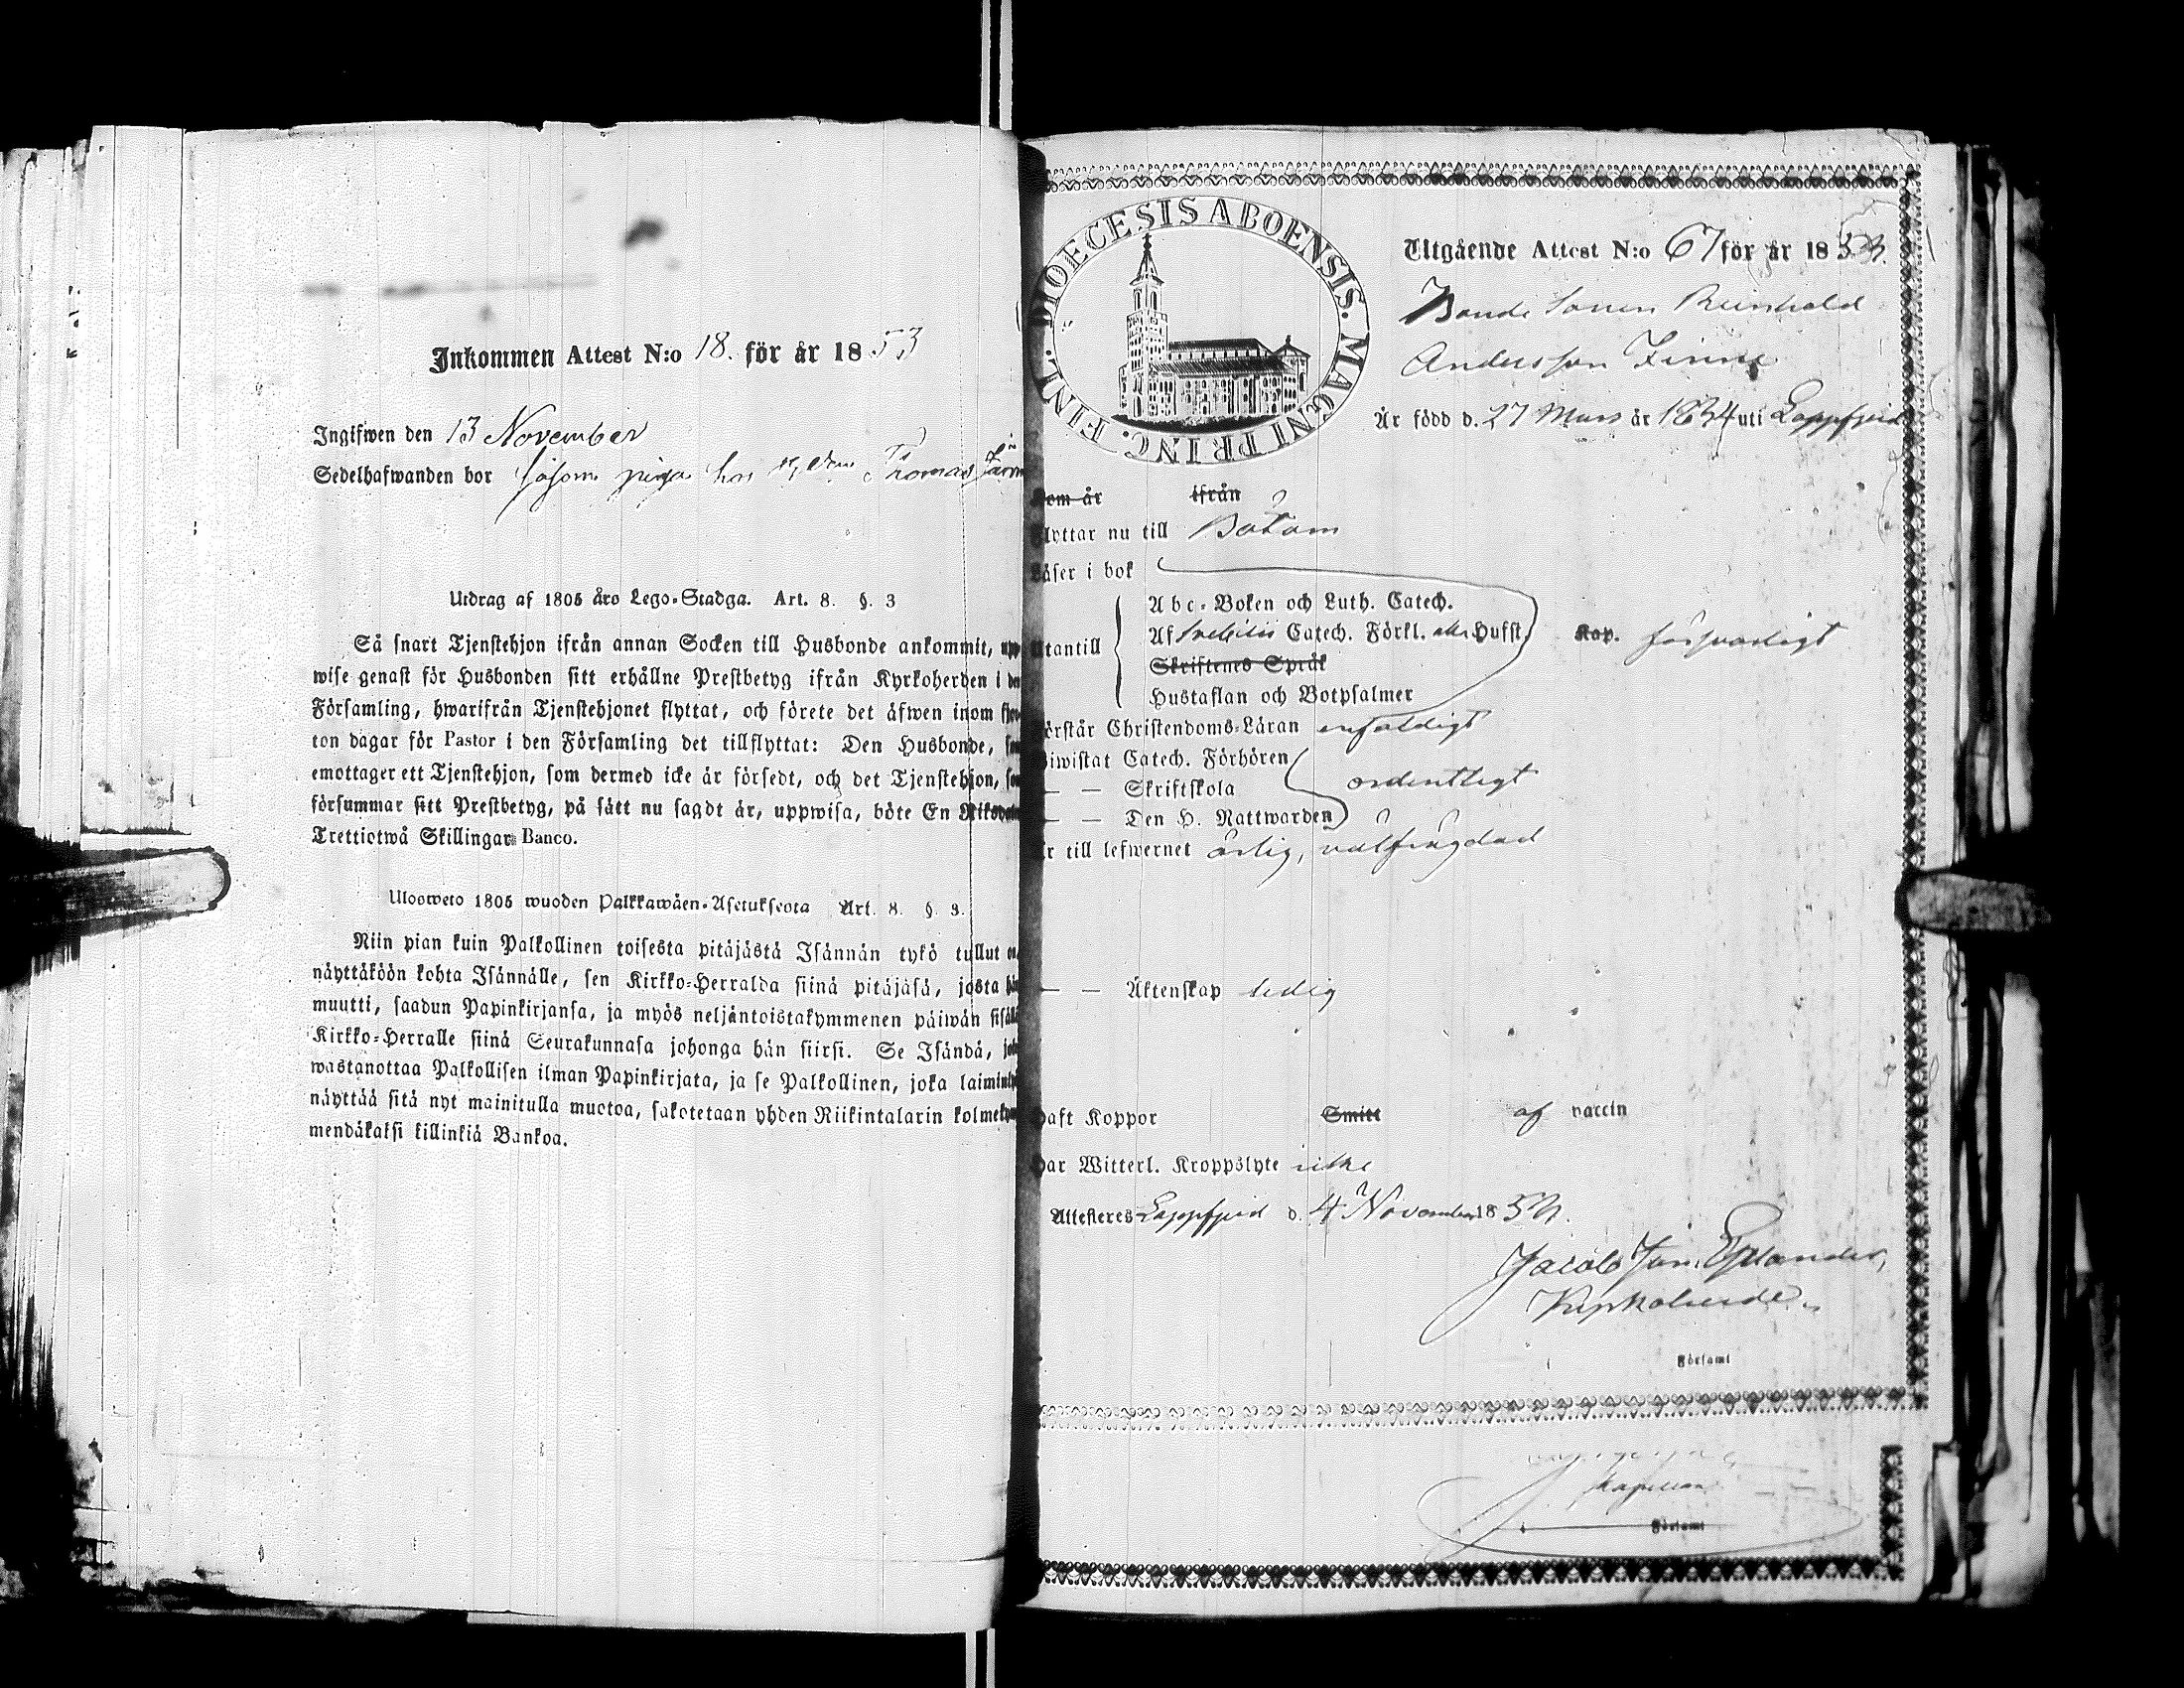 Inkommen Attest N:o 18. för år 1853
Ingifwen den 13 November
Sedelhafwanden bor såsom piga hos Thomas
Utdrag af 1805 års Lego-Stadga. Art. 8. §. 3
Så snart Tjenstehjon ifrån annan Socken till Husbonde ankommit, upp
wise genast för Husbonden sitt erhållne Prestbetyg ifrån Kyrkoherden i den
Församling, hwarifrån Tjenstehjonet flyttat, och förete det äfwen inom fjor
ton dagar för Pastor i den Församling det tillflyttat: Den Husbonde, som
emottager ett Tjenstehjon, som dermed icke är försedt, och det Tjenstehjon, som
försummar sitt Prestbetyg, på sätt nu sagdt är, uppwisa, böte En Riksdaler
Trettiotwå Skillingar Banco.
Ulosweto 1805 wuoden Palkkawäen-Asetuksesta Art. 8. §. 3.
Niin pian kuin Palkollinen toisesta pitäjästä Isännän tykö tullut on,
näyttäköön kohta Isännälle, sen Kirkko-Herralda siinä pitäjäsä, josta hän
muutti, saadun Papinkirjansa, ja myös neljäntoistakymmenen päiwän sisällä
Kirkko-Herralle siinä Seurakunnasa johonga hän siirsi. Se Isändä, joka
wastanottaa Palkollisen ilman Papinkirjata, ja se Palkollinen, joka laimin
näyttää sitä nyt mainitulla muotoa, sakotetaan yhden Riikintalarin kolmekym
mendäkaksi killinkiä Bankoa.
DIOECESIS ABOENSIS. MAGNI PRINC. FINL.
Utgående Attest N:o 67 för år 1853.
Bonde Sonen Reinhold
Andersson Finne
Är född d. 27 Mars år 1834 uti Lappfjerd
Som är ifrån
flyttar nu till Bötom
Läser i bok
Abc-Boken och Luth. Catech.
Utantill Af Svebilii Catech. Förkl. eller Hufst. Kap. försvarligt
Skriftenes Språk
Hustaflan och Botpsalmer
Förstår Christendoms-Läran enfaldigt
Biwistat Catech. Förhören
— — Skriftskola ordentligt
— — Den H. Nattwarden
Är till lefwernet ärlig, välfrägdad
— — Äktenskap ledig
Haft Koppor Smitt af vaccin
Har Witterl. Kroppslyte icke
Attesteres Lappfjerd d. 4 November 1853.
Jacob Joh. Estlander,
Kyrkoherde.
Församl
Kapellan
Församl